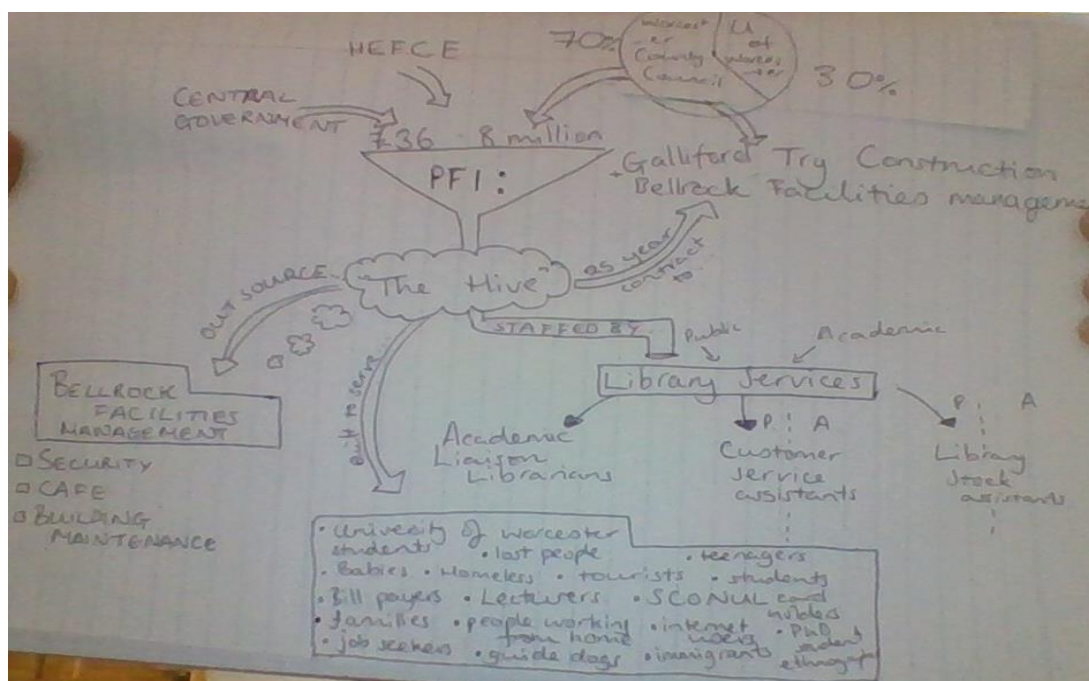 HEFCE
70%
Worcest
-er
County
Council
U
of
Worces
-ter
30%
CENTRAL
GOVERNMENT
£36 8 million
PFI:
Galliford Try Construction
+ Bellrock Facilities manageme
"The Hive"
25 year
contract
to...
OUTSOURCE...
STAFFED BY...
Public
Academic
Library Services
built to serve...
BELLROCK
FACILITIES
MANAGEMENT
SECURITY
CAFE
BUILDING
MAINTENANCE
Academic
Liaison
Librarians
P A
Customer
service
assistants
P A
Library
stock
assistants
• University of Worcester
students • lost people • teenagers
• Babies • Homeless • tourists • students
• Bill payers • Lecturers • SCONUL card
holders
• families • people working
from home • internet
users • PhD
student
ethnographer
• job seekers • guide dogs • immigrants